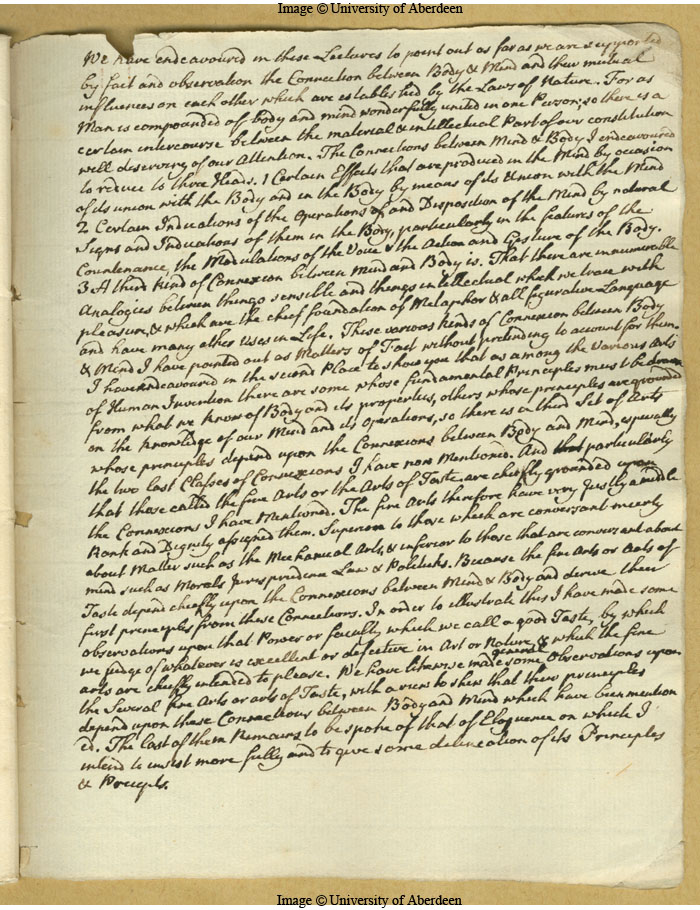 Image © University of Aberdeen
We have endeavoured in these Lectures to point out as far as we are supported
by fact and observation the Connection between Body & Mind and their mutual
influences on each other which are established by the Laws of Nature. For as
Man is compounded of body and mind wonderfully united in one Person; so there is a
certain intercourse between the material & intellectual Part of our constitution
well deserving of our Attention. The Connections between Mind & Body I endeavoured
to reduce to three Heads. 1 Certain Effects that are produced in the Mind by occasion
of its union with the Body and in the Body by means of its Union with the Mind
2 Certain Indications of the Operations of and Disposition of the Mind by natural
Signs and Indications of them in the Body, particularly in the features of the
Countenance, the Modulations of the Voice & the Action and Gesture of the Body.
3 A third kind of Connexion between Mind and Body is. That there are innumerable
Analogies between things sensible and things intellectual which we trace with
pleasure, & which are the chief foundation of Metaphor & all figurative Language
and have many other Uses in Life. These various kinds of Connexion between Body
& Mind I have pointed out as Matters of Fact without pretending to account for them.
I have endeavoured in the second Place to show you that as among the various Arts
of Human Invention there are some whose fundamental Principles must be drawn
from what we know of Body and its properties, others whose principles are grounded
on the knowledge of our Mind and its operations, so there is a third Set of Arts
whose principles depend upon the Connexions between Body and Mind, especially
the two last Classes of Connexions I have now Mentioned. And that particularly
that those called the fine Arts or the Arts of Taste are chiefly grounded upon
the Connexions I have Mentioned. The fine Arts therefore have very justly a middle
Rank and Dignity assigned them. Superior to those which are conversant meerly
about Matter such as the Mechanical Arts, & inferior to those that are conversant about
mind such as Morals Jurisprudence Law & Politicks. Because the fine Arts or Arts of
Taste depend chiefly upon the Connexions between Mind & Body and derive their
first principles from these Connections. In order to illustrate this I have made some
observations upon that Power or faculty which we call a good Taste, by which
we judge of whatever is excellent or defective in Art or Nature, & which the fine
arts are chiefly intended to please. We have likewise made some general Observations upon
the Several fine Arts or arts of Taste, with a view to shew that their principles
depend upon these Connections between Body and Mind which have been mention
ed. The last of them Remains to be spoke of that of Eloquence on which I
intend to insist more fully and to give some delineation of its Principles
& Precepts.
Image © University of Aberdeen